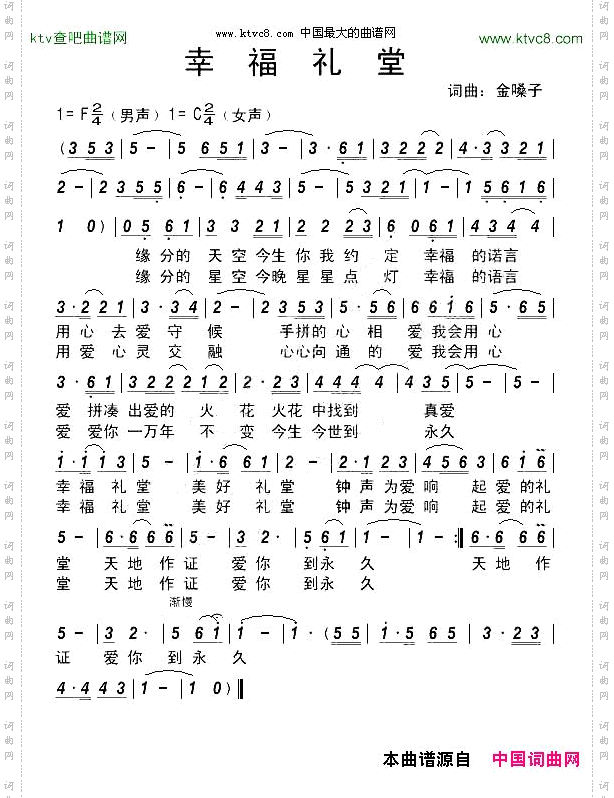 ktv查吧曲谱网
www.ktvc8.com 中国最大的曲谱网
www.ktvc8.com
幸福礼堂
词曲：金嗓子
1=F2/4（男声）1=C2/4（女声）
(3 5 3 | 5 - | 5 6 5 1 | 3 - | 3 · 6 1 | 3 2 2 2 | 4 · 3 3 2 1 |
2 - | 2 3 5 5 | 6 - | 6 4 4 3 | 5 - | 5 3 2 1 | 1 - | 1 5 6 1 6 |
1 0) | 0 5 6 1 | 3 3 2 1 | 2 2 2 3 | 6 0 6 1 | 4 3 4 4 |
缘分的 天空今生你我约 定 幸福 的诺言
缘分的 星空今晚星星点 灯 幸福 的语言
3 · 2 2 1 | 3 · 3 4 | 2 - | 2 3 5 3 | 5 · 5 6 | 6 6 6 1 | 5 · 6 5 |
用心 去爱守 候 手拼的心相 爱我会用心
用爱 心灵交 融 心心向通的 爱我会用心
3 · 6 1 | 3 2 2 2 2 1 2 | 2 · 3 2 | 4 4 4 4 | 5 - | 5 - |
爱 拼凑 出爱的 火 花 火花 中找到 真爱
爱 爱你 一万年 不 变 今生 今世到 永久
1 · 1 1 3 | 5 - | 1 · 6 6 1 | 2 - | 2 · 1 2 3 | 4 5 6 3 | 6 1 6 |
幸福 礼堂 美好 礼堂 钟声为爱响 起爱的礼
幸福 礼堂 美好 礼堂 钟声为爱响 起爱的礼
5 - | 6 · 6 6 6 | 5 - | 3 2 · | 5 6 1 | 1 - | 1 - :‖ 6 · 6 6 6 |
堂 天地作证 爱你 到永久 天地 作
堂 天地作证 爱你 到永久
渐慢
5 - | 3 2 · | 5 6 1 | 1 - | 1 · (5 5 | 1 · 5 | 6 4 · | 5 · 5 5 5 |
证 爱你 到永久
4 · 4 4 3 | 1 - | 1 0) ‖
本曲谱源自 中国词曲网